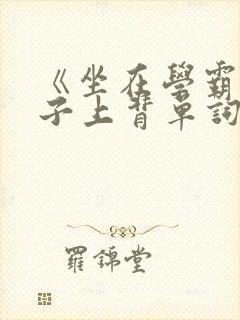 《坐在學霸
子上背單詞
羅錦堂